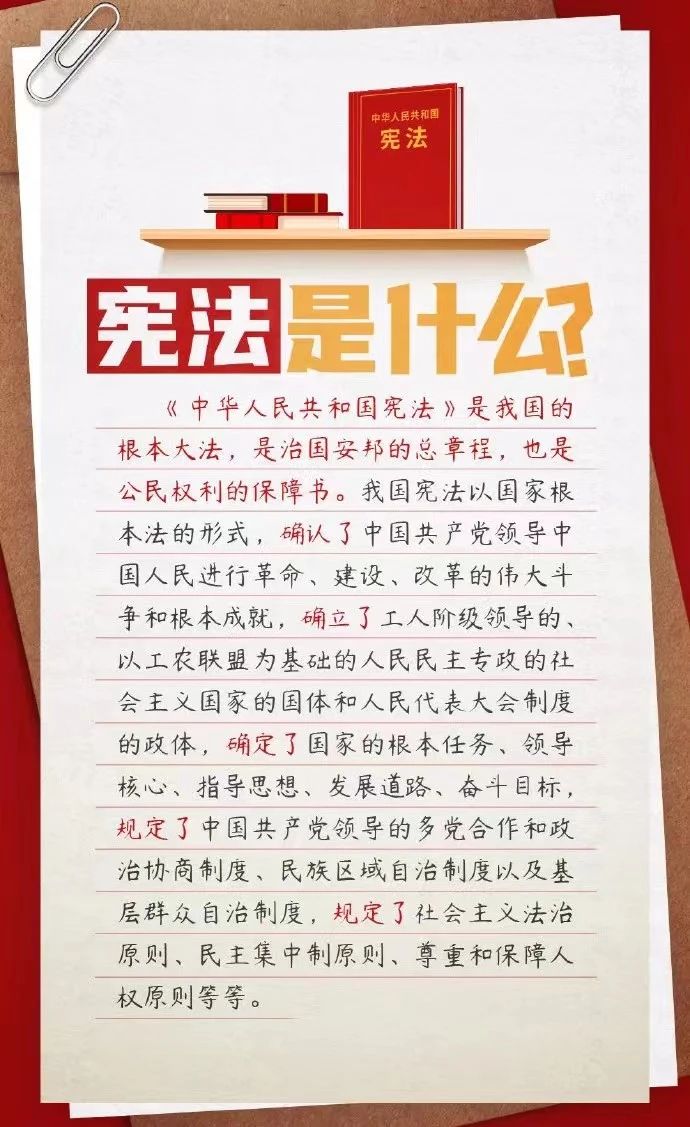 中华人民共和国
宪法
宪法是什么?
《中华人民共和国宪法》是我国的
根本大法，是治国安邦的总章程，也是
公民权利的保障书。我国宪法以国家根
本法的形式，确认了中国共产党领导中
国人民进行革命、建设、改革的伟大斗
争和根本成就，确立了工人阶级领导的、
以工农联盟为基础的人民民主专政的社
会主义国家的国体和人民代表大会制度
的政体，确定了国家的根本任务、领导
核心、指导思想、发展道路、奋斗目标，
规定了中国共产党领导的多党合作和政
治协商制度、民族区域自治制度以及基
层群众自治制度，规定了社会主义法治
原则、民主集中制原则、尊重和保障人
权原则等等。